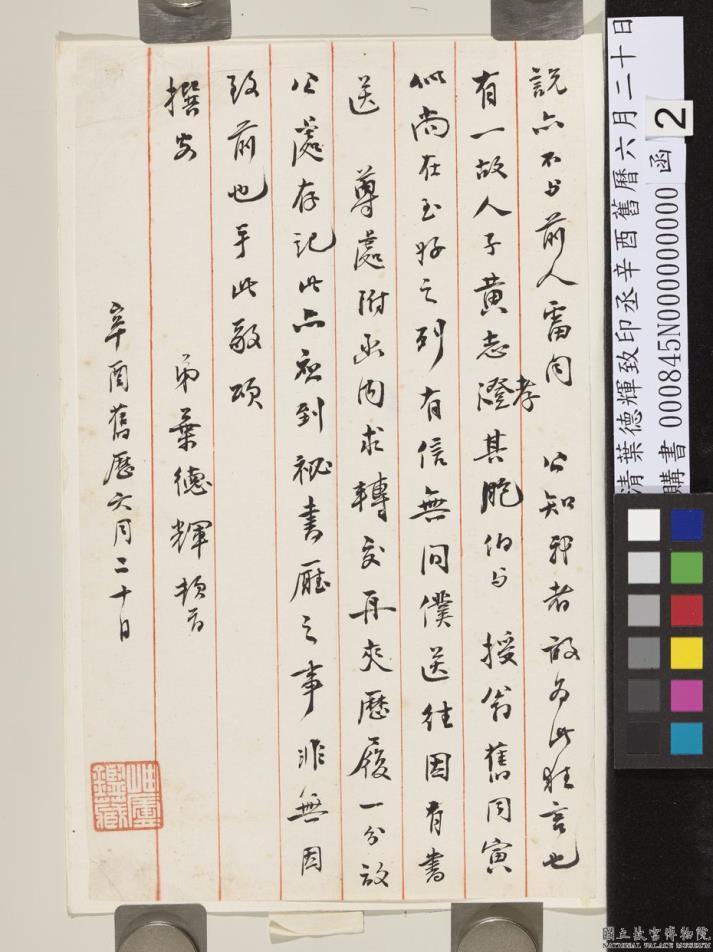 說亦不與前人雷同　公知我者故為此狂言也
有一故人子黃志澄孝其胞伯与　授翁舊同寅
似尚在至好之列有信無問僕送往因有書
送　尊處附函內求轉交再夾歷履一分放
公處存記此亦初到祕書廳之事非無因
致前也手此敬頌
撰安
弟葉德輝頓首
辛酉舊歷六月二十日
清葉德輝致印丞辛酉舊曆六月二十日　函
購書 000845N000000000
2
國立故宮博物院
NATIONAL PALACE MUSEUM